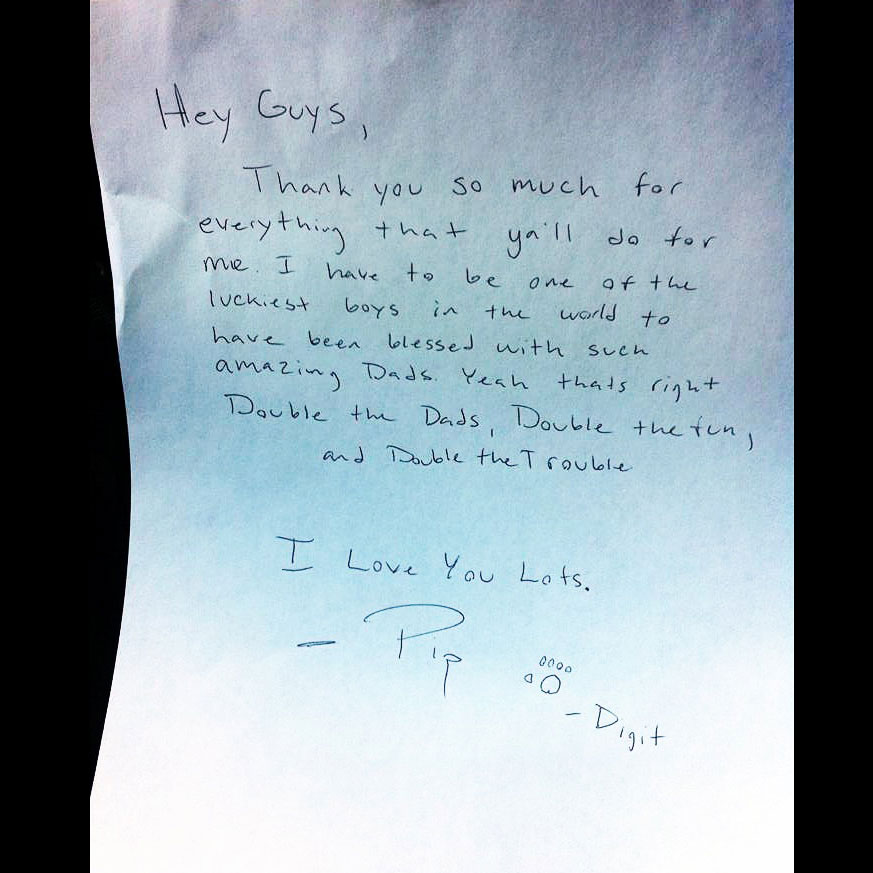 Hey Guys,
Thank you so much for
everything that ya'll do for
me. I have to be one of the
luckiest boys in the world to
have been blessed with such
amazing Dads. Yeah thats right
Double the Dads, Double the fun,
and Double the Trouble
I Love You Lots.
- Pip
- Digit